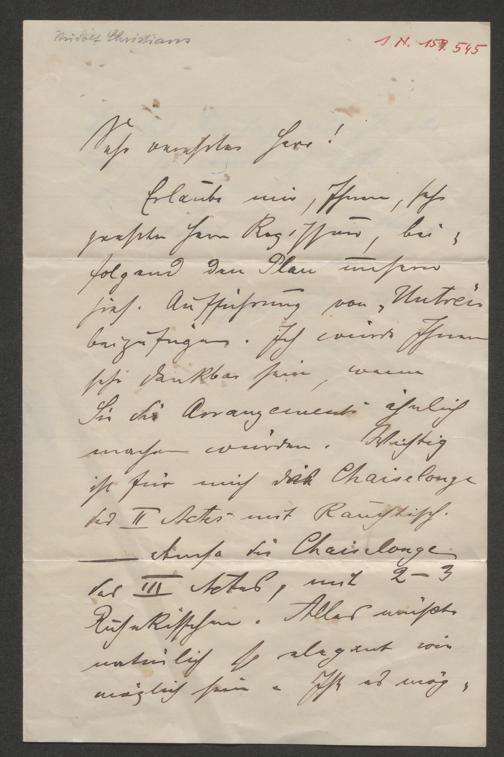 Rudolf Christians
I N. 159.545
Sehr verehrter Herr!
Erlaube mir, Ihnen, sehr
geehrter Herr Regisseur, bei-
folgend den Plan unserer
hies. Aufführung von „Untreu
beizufügen. Ich würde Ihnen
sehr dankbar sein, wenn
Sie die Arrangements ähnlich
machen würden. Wichtig
ist für mich die Chaiselonge
des II Actes mit Rauchtisch.
— die Chaiselonge
des III Actes, mit 2-3
Ruhekissen. Alles müßte
natürlich so elegant wie
möglich sein. Ist es mög-